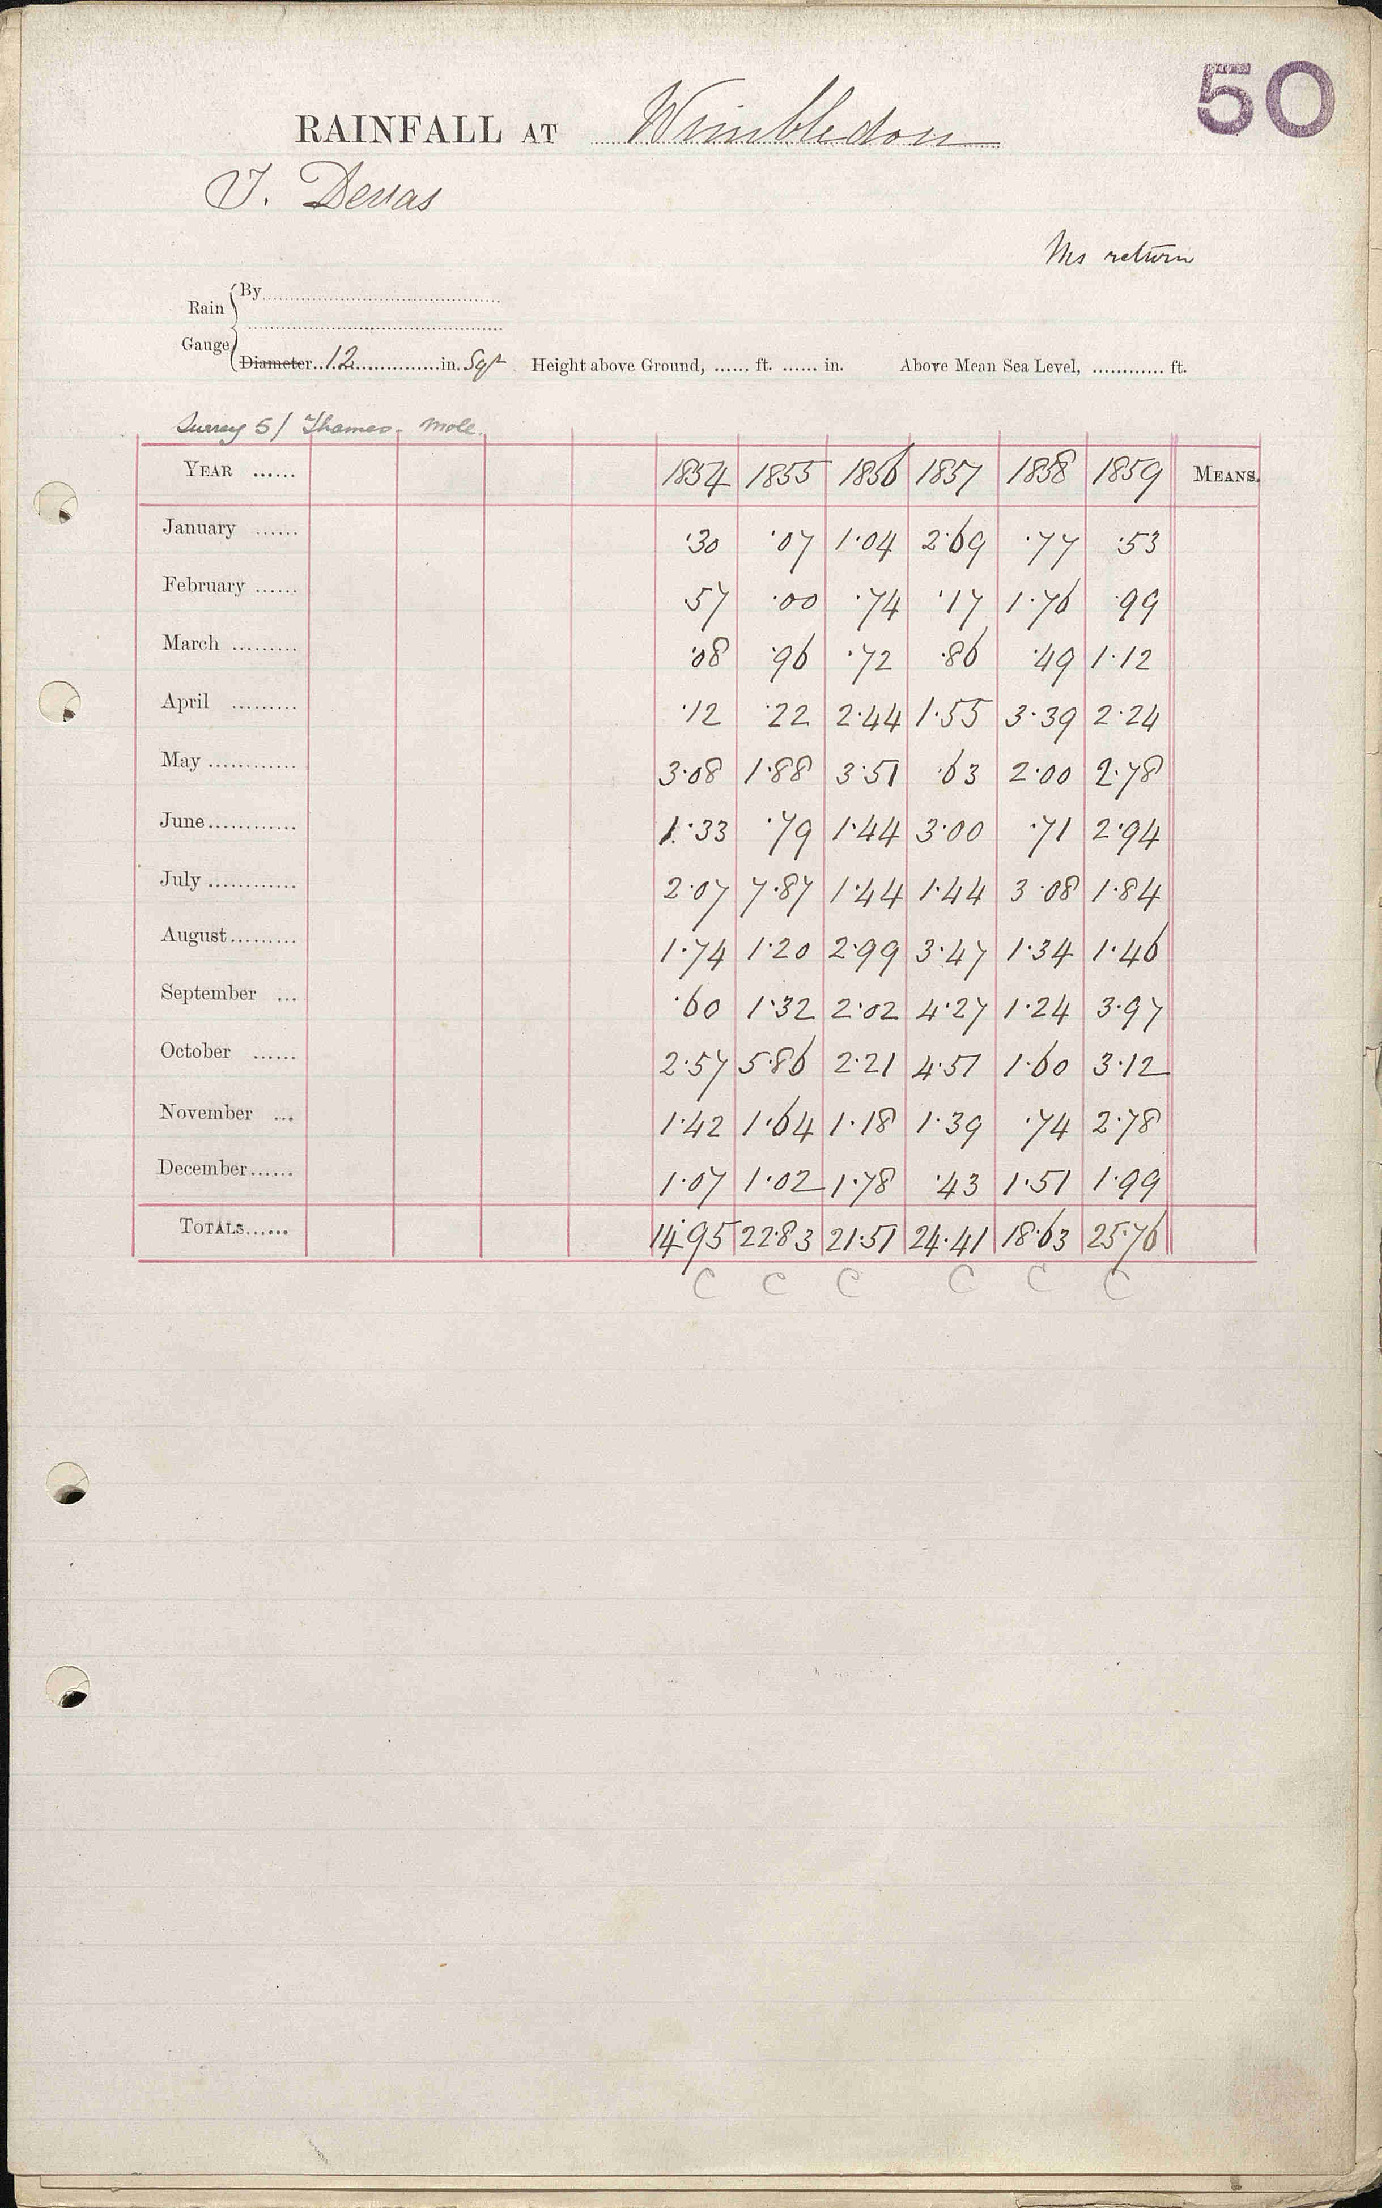 50
RAINFALL AT Wimbledon
T. Devas
Ms return
Rain Gauge
By
Diameter 12 in. Sq
Height above Ground, ...... ft. ...... in. Above Mean Sea Level, ............ ft.
Surrey 5/ Thames - Mole.
YEAR ...... 1854 1855 1856 1857 1858 1859 MEANS.
January ...... ·30 ·07 1·04 2·69 ·77 ·53
February ...... ·57 ·00 ·74 ·17 1·76 ·99
March ......... ·08 ·96 ·72 ·86 ·49 1·12
April ......... ·12 ·22 2·44 1·55 3·39 2·24
May ............ 3·08 1·88 3·51 ·63 2·00 2·78
June ............ 1·33 ·79 1·44 3·00 ·71 2·94
July ............ 2·07 7·87 1·44 1·44 3·08 1·84
August ......... 1·74 1·20 2·99 3·47 1·34 1·46
September ... ·60 1·32 2·02 4·27 1·24 3·97
October ...... 2·57 5·86 2·21 4·51 1·60 3·12
November ... 1·42 1·64 1·18 1·39 ·74 2·78
December ...... 1·07 1·02 1·78 ·43 1·51 1·99
TOTALS ...... 14·95 22·83 21·51 24·41 18·63 25·76
C C C C C C